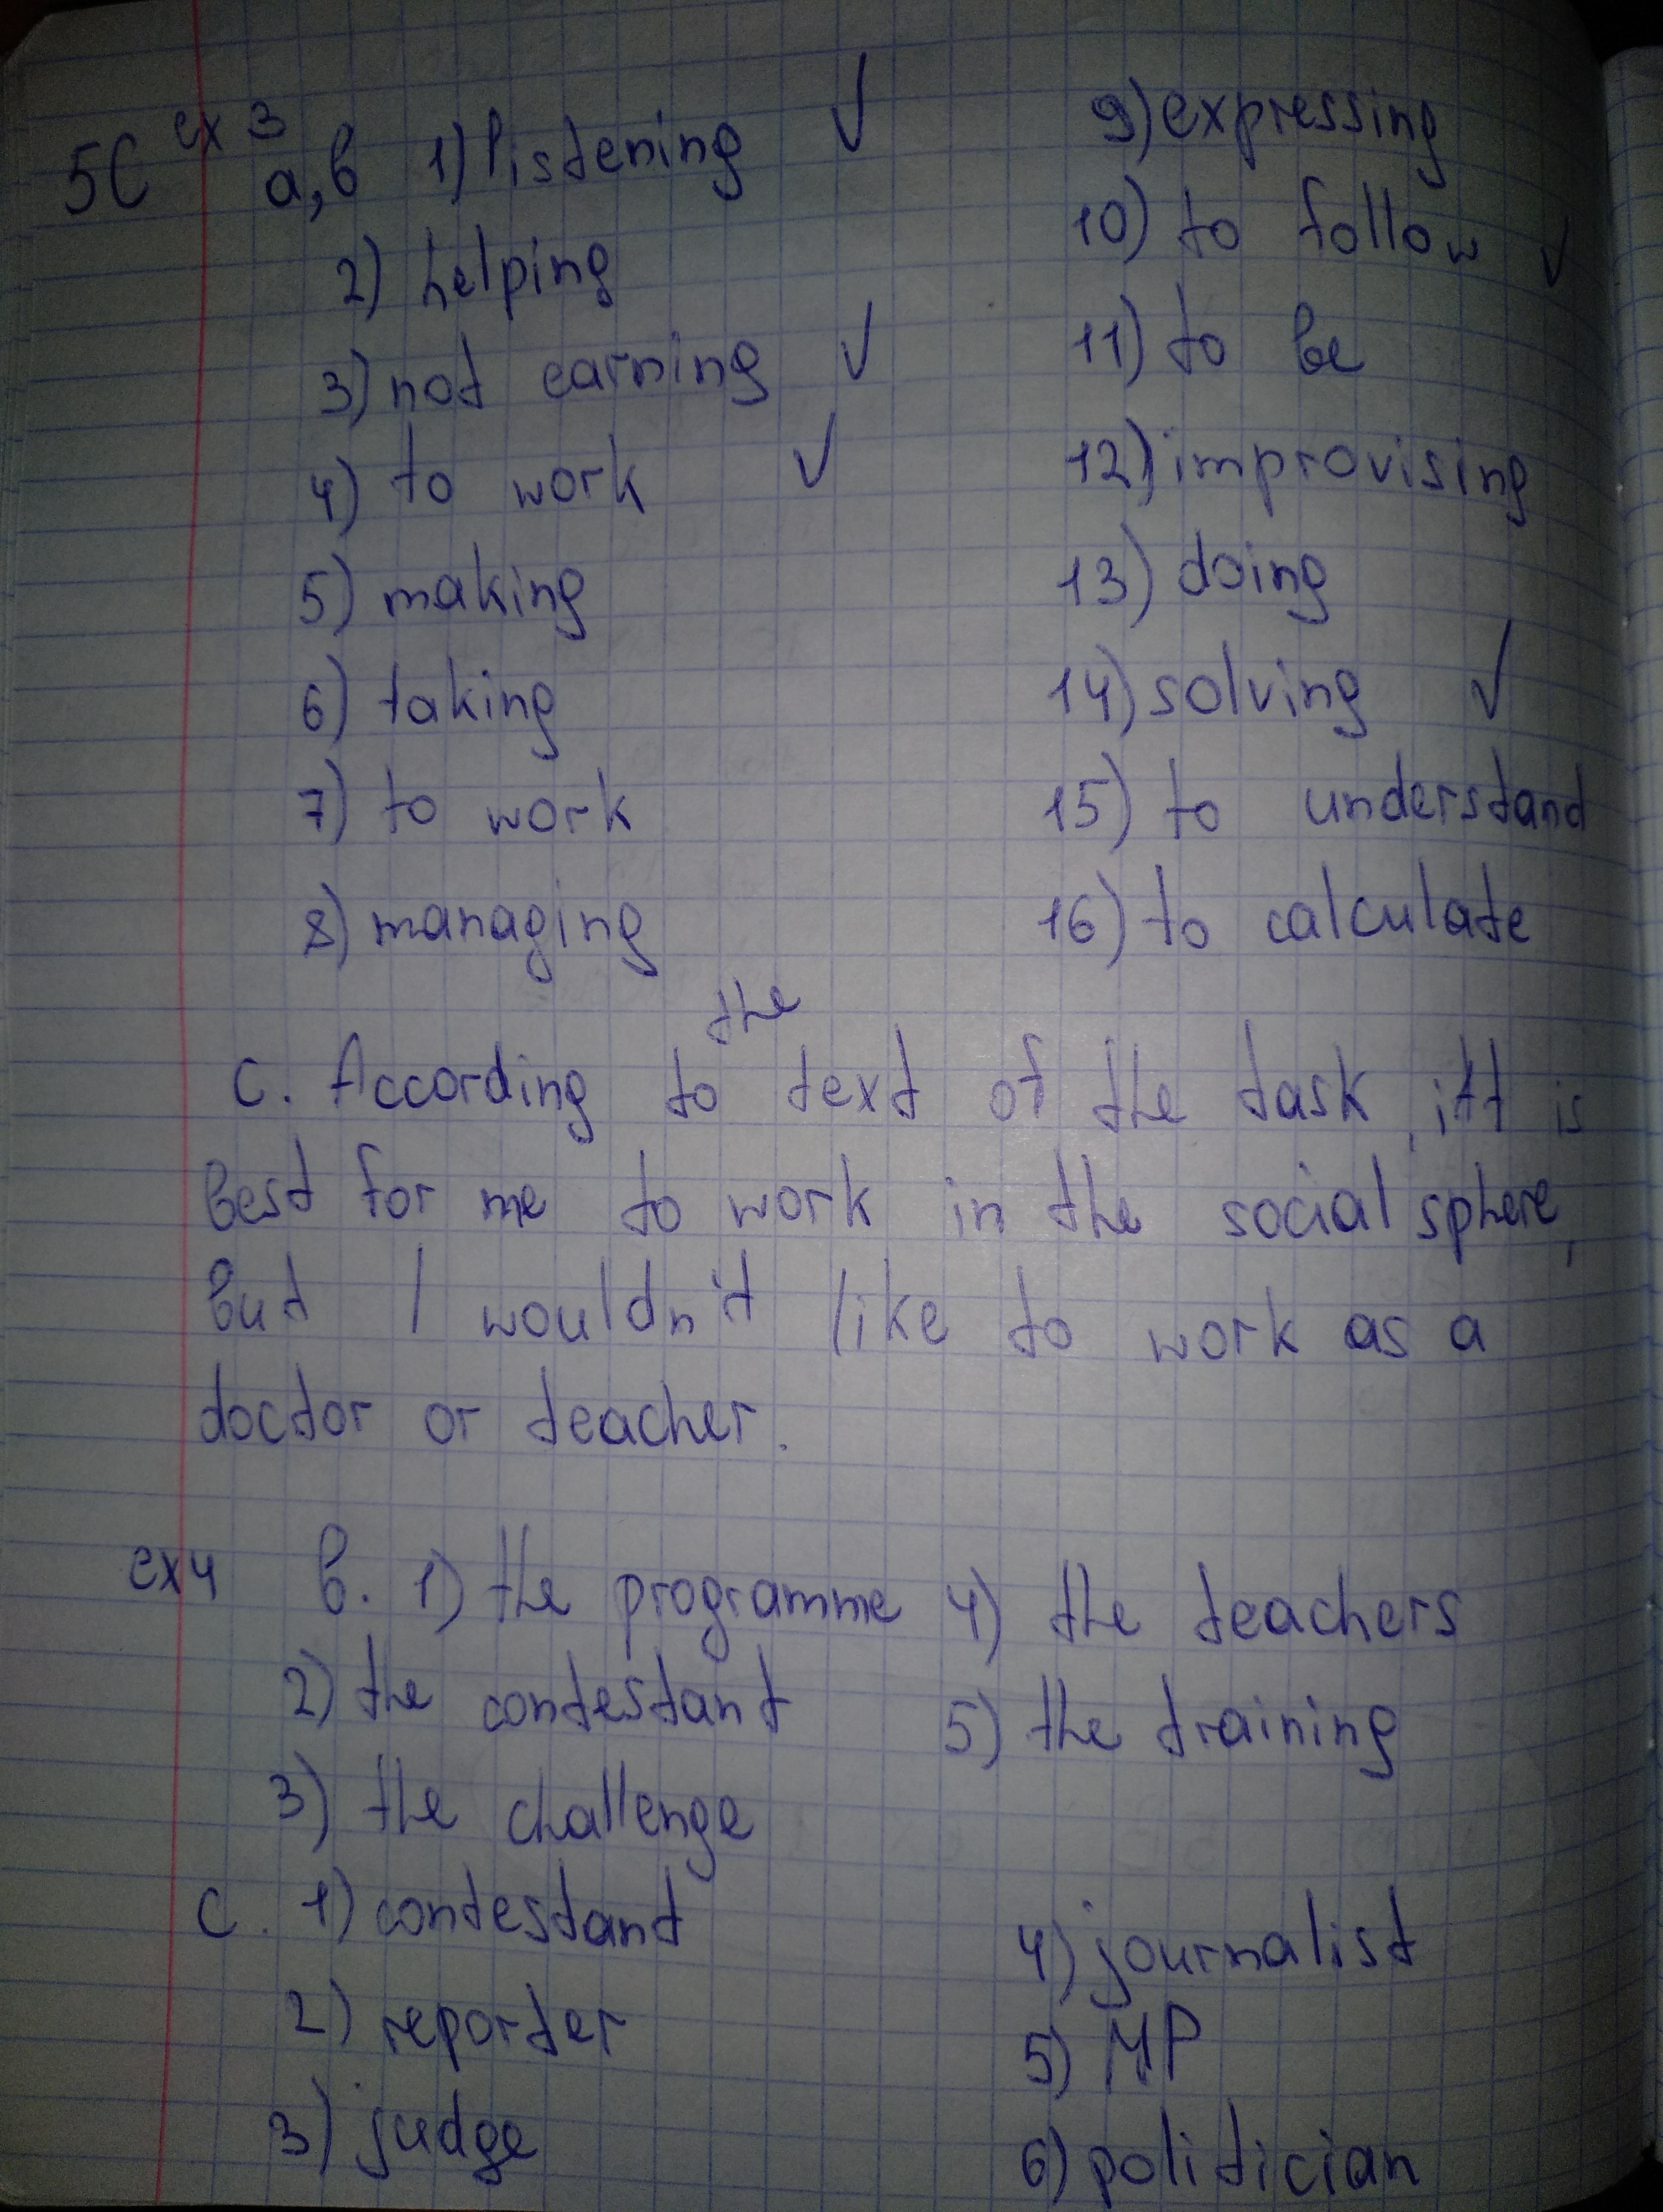 5C ex 3 a,b 1) listening ✓
2) helping
3) not earning ✓
4) to work ✓
5) making
6) taking
7) to work
8) managing
9) expressing
10) to follow ✓
11) to be
12) improvising
13) doing
14) solving ✓
15) to understand
16) to calculate
the
C. According to text of the task, itt is
best for me to work in the social sphere,
but I wouldn't like to work as a
doctor or teacher.
ex4 b. 1) the programme
2) the contestant
3) the challenge
4) the teachers
5) the training
C. 1) contestant
2) reporter
3) judge
4) journalist
5) MP
6) politician